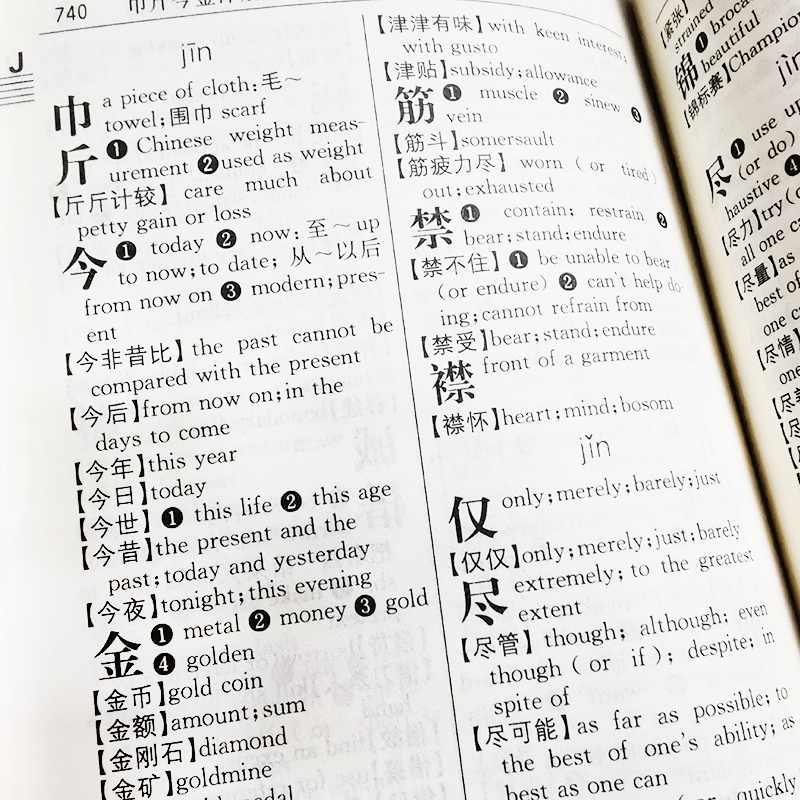 740
J
jīn
巾 a piece of cloth:毛～
towel;围巾 scarf
斤 ❶ Chinese weight meas-
urement ❷used as weight
【斤斤计较】 care much about
petty gain or loss
今 ❶ today ❷ now:至～up
to now;to date; 从～以后
from now on ❸ modern;pres-
ent
【今非昔比】the past cannot be
compared with the present
【今后】from now on;in the
days to come
【今年】this year
【今日】today
【今世】❶ this life ❷ this age
【今昔】the present and the
past;today and yesterday
【今夜】tonight;this evening
金 ❶ metal ❷ money ❸ gold
❹ golden
【金币】gold coin
【金额】amount;sum
【金刚石】diamond
【金矿】goldmine
【津津有味】with keen interest;
with gusto
【津贴】subsidy;allowance
筋 ❶ muscle ❷ sinew ❸
vein
【筋斗】somersault
【筋疲力尽】 worn (or tired)
out;exhausted
禁 ❶ contain; restrain ❷
bear;stand;endure
【禁不住】❶ be unable to bear
(or endure) ❷ can't help do-
ing;cannot refrain from
【禁受】bear;stand;endure
襟 front of a garment
【襟怀】heart;mind;bosom
jǐn
仅 only;merely;barely;just
【仅仅】only;merely;just;barely
尽 extremely; to the greatest
extent
【尽管】though; although; even
though (or if); despite; in
spite of
【尽可能】as far as possible; to
the best of one's ability; as
best as one can
quickly
【紧张】
strained
锦 ❶ broca
beautiful
【锦标赛】Champion
jìn
尽 ❶ use up
(or do)
haustive ❹
【尽力】try(o
all one ca
【尽量】as
best of
one c
【尽情】
one